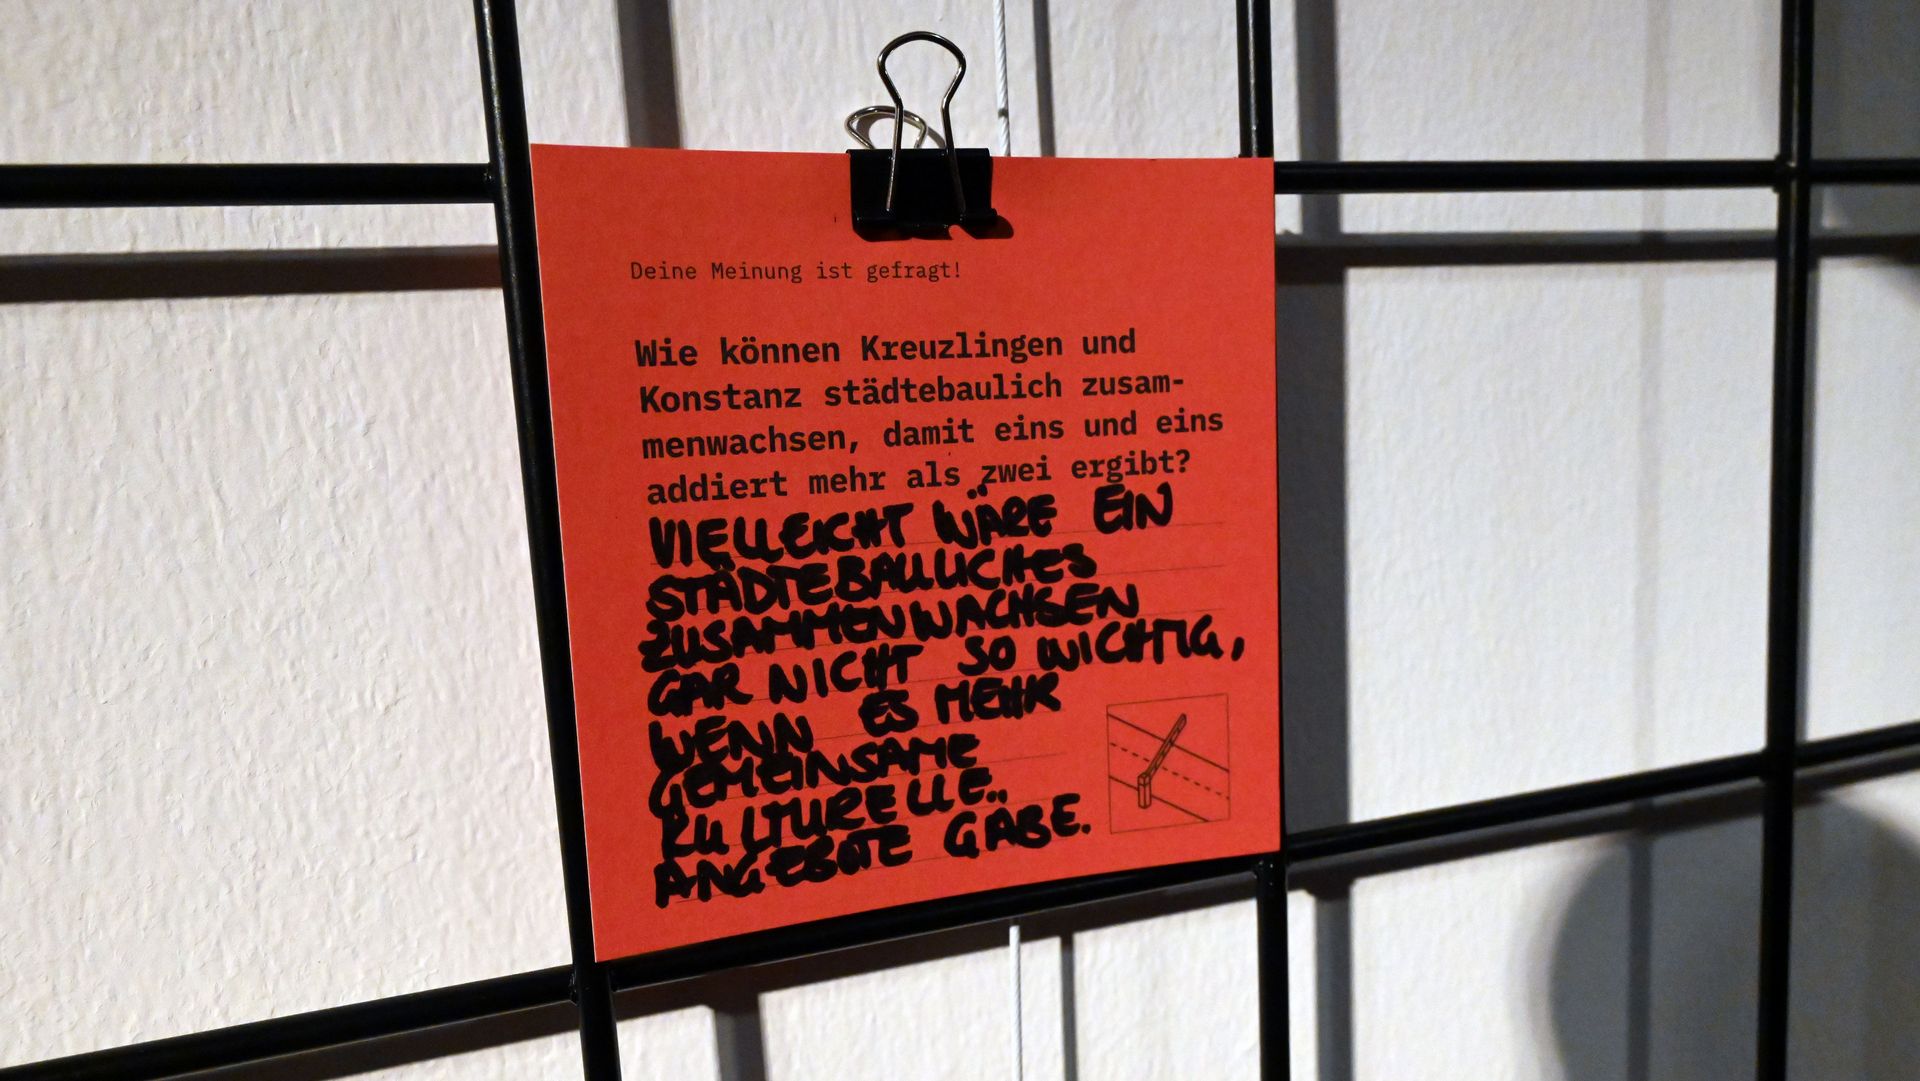 Deine Meinung ist gefragt!
Wie können Kreuzlingen und
Konstanz städtebaulich zusam-
menwachsen, damit eins und eins
addiert mehr als zwei ergibt?
VIELLEICHT WÄRE EIN
STÄDTEBAULICHES
ZUSAMMENWACHSEN
GAR NICHT SO WICHTIG,
WENN ES MEHR
GEMEINSAME
KULTURELLE
ANGEBOTE GÄBE.